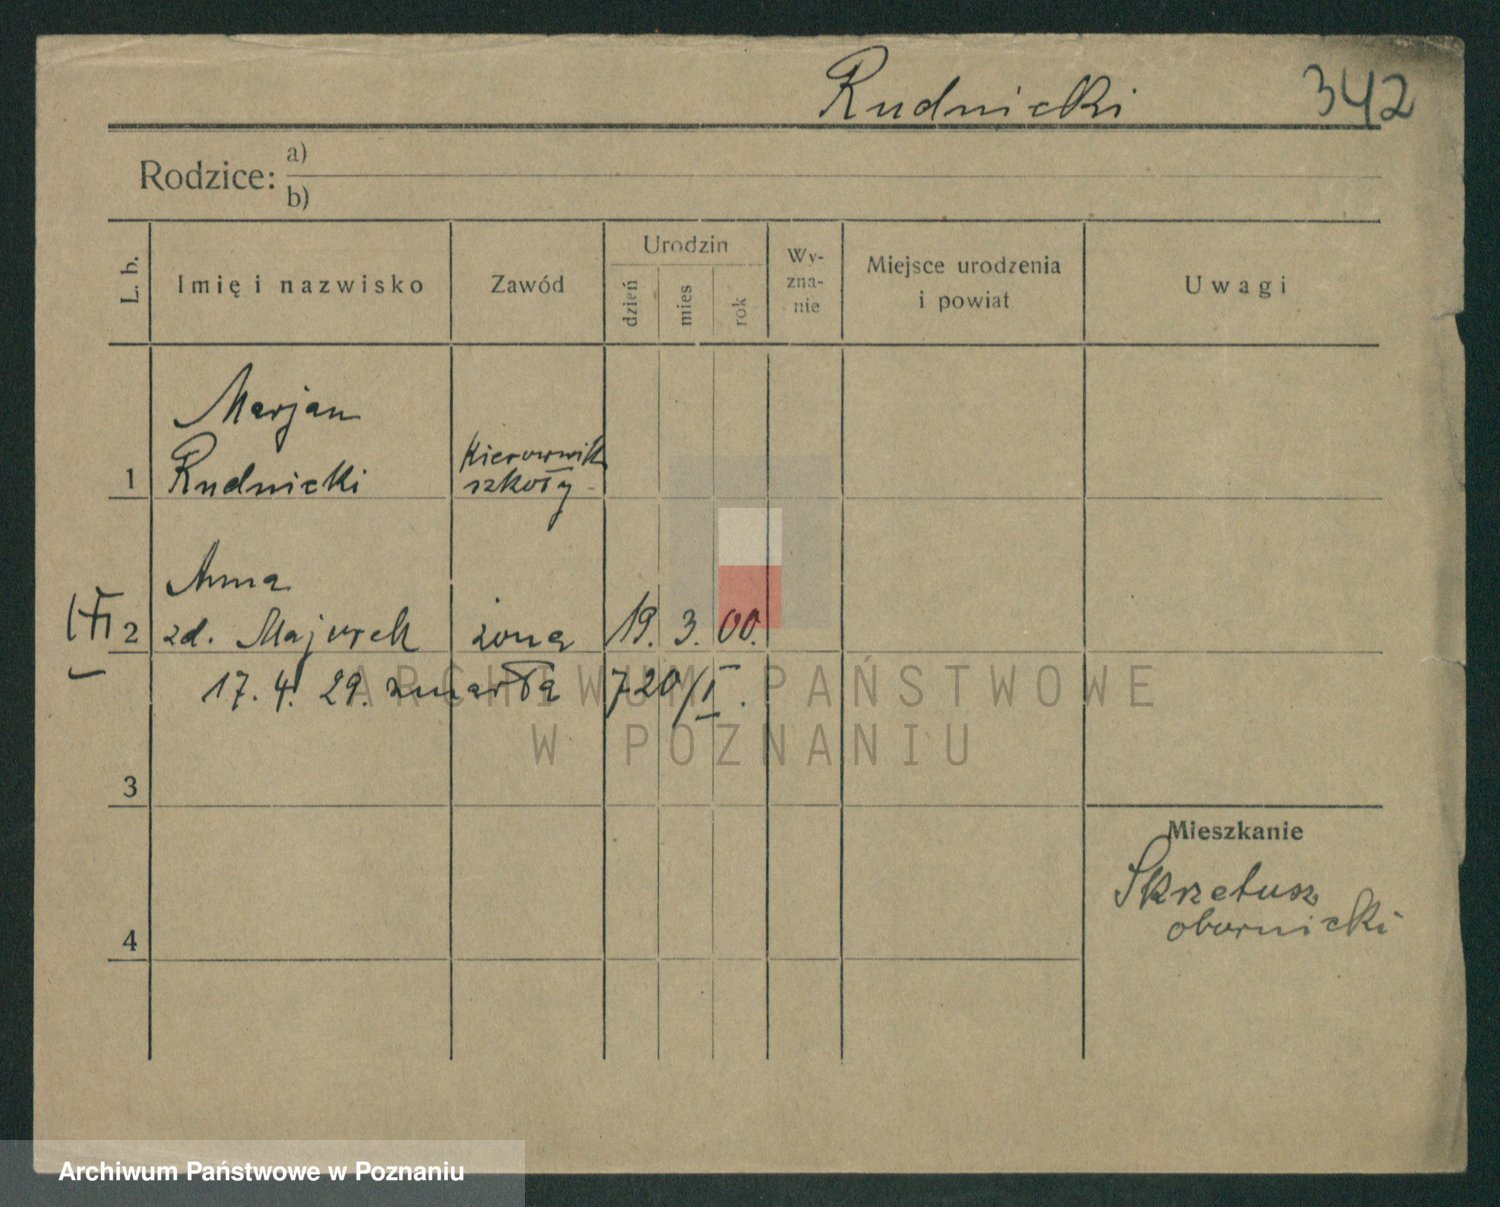 Rudnicki 342
Rodzice: a)
b)
L. b.
Imię i nazwisko
Zawód
Urodzin
dzień
mies
rok
Wy-
zna-
nie
Miejsce urodzenia
i powiat
Uwagi
Marjan
1 Rudnicki
Kierownik
szkoły
Anna
2 zd. Majurek żona 19. 3. 00.
17. 4. 29. zmarła 720/I.
3
4
Mieszkanie
Skrzetusz
obornicki
ARCHIWUM PAŃSTWOWE
W POZNANIU
Archiwum Państwowe w Poznaniu